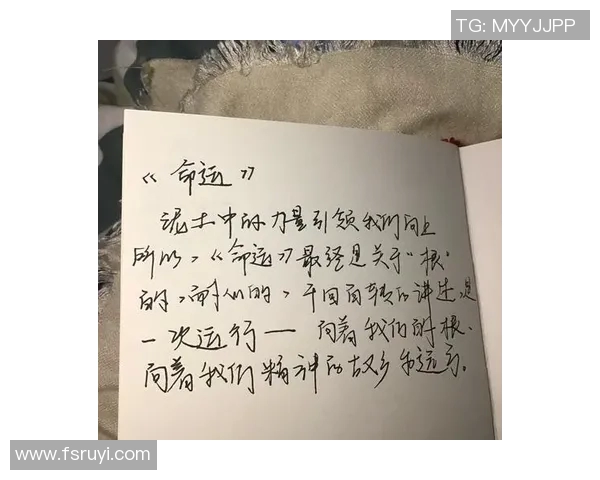 TG: MYYJJPP
《命运》
泥土中的力量引领我们向上
所以,《命运》最终是关于“根”
的,耐人的,千回百转的讲述,是
一次运行— 向着我们的根、
向着我们精神的故乡的运行。
www.fsruyi.com